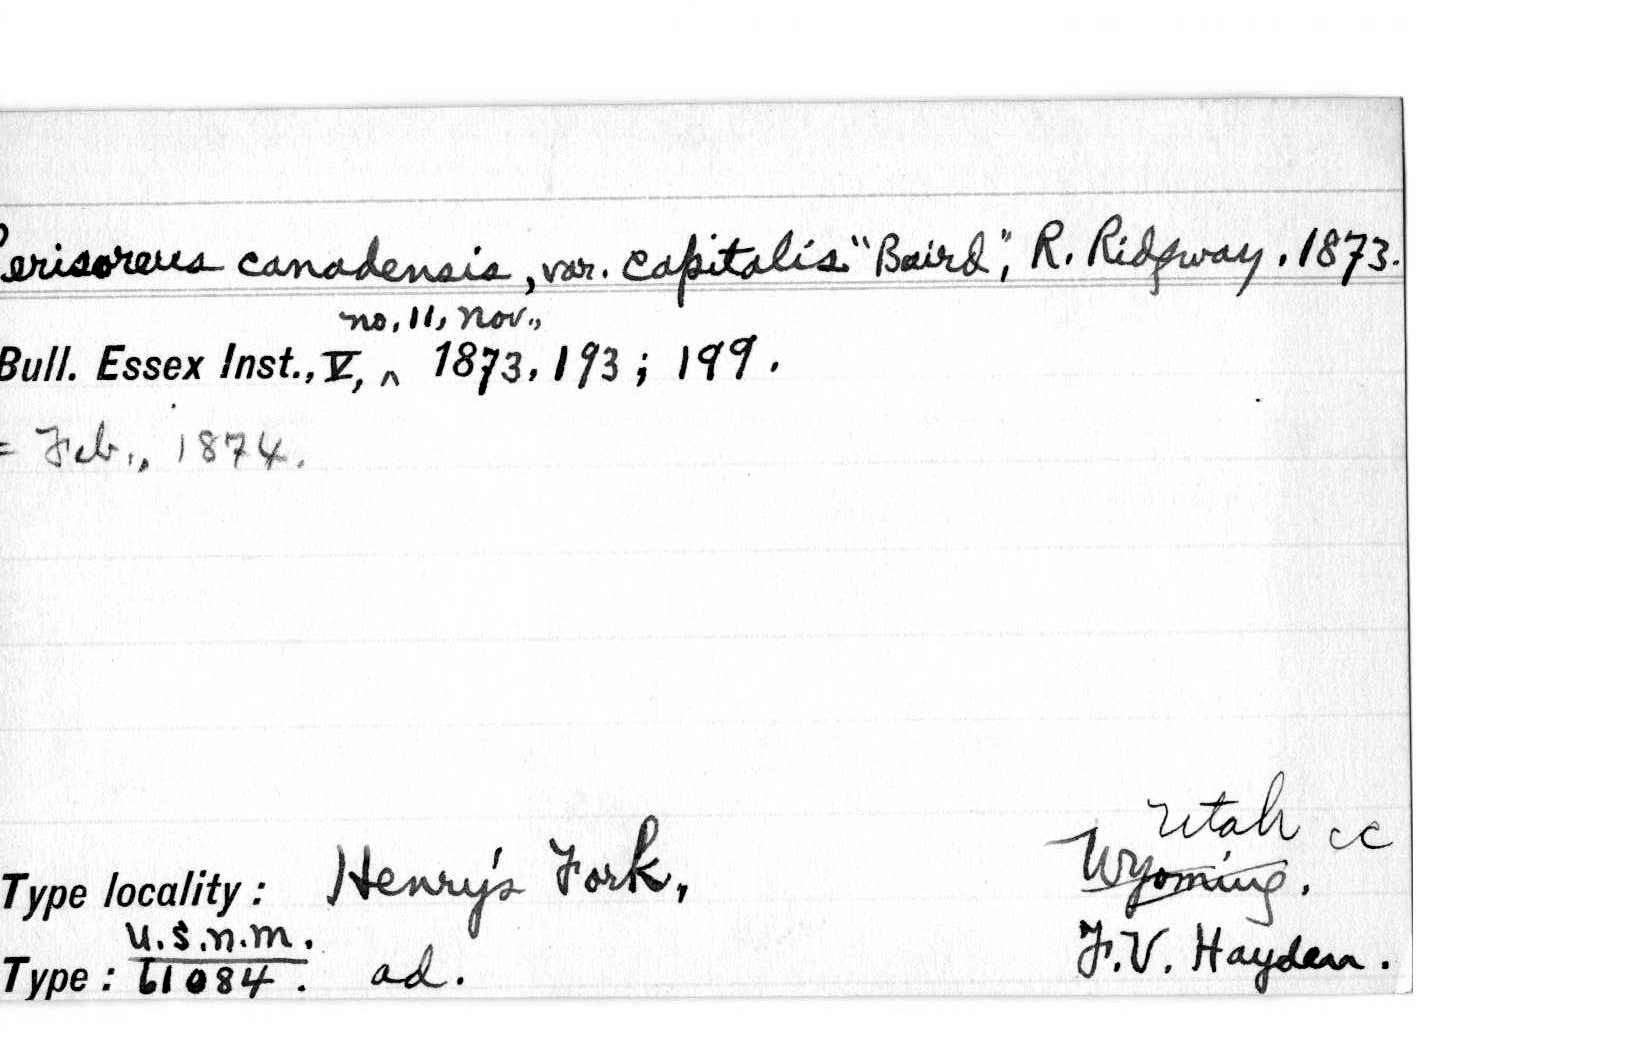 Perisoreus canadensis, var. capitalis "Baird", R. Ridgway. 1873.
no. 11, Nov.,
Bull. Essex Inst., V, ^ 1873, 193; 199.
= Feb., 1874.
Utah cc
Type locality: Henry's Fork, Wyoming.
U.S.N.M. F.V. Hayden.
Type: 61084. ad.